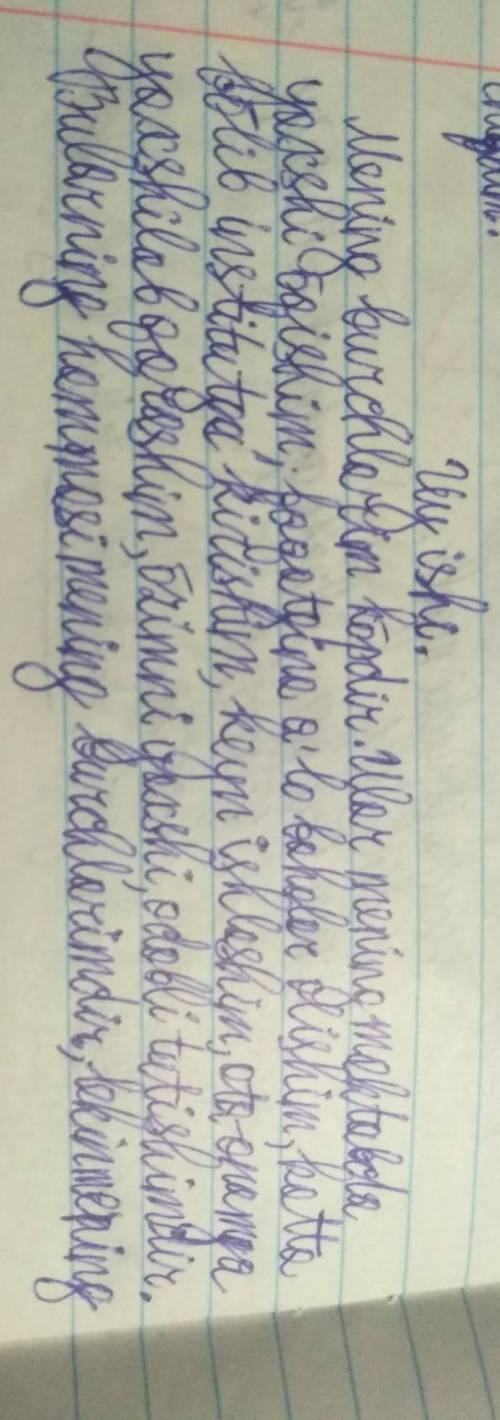 Uy ishi.
Mening burchlarim ko'pdir. Ular mening maktabda
yaxshi o'qishim, faqatgina a'lo baholar olishim, katta
bo'lib institutga kirishim, keyin ishlashim, ota, onamga
yaxshilab qarashim, o'zimni yaxshi, odobli tutishimdir.
Bularning hammasi mening burchlarimdir, lekin mening